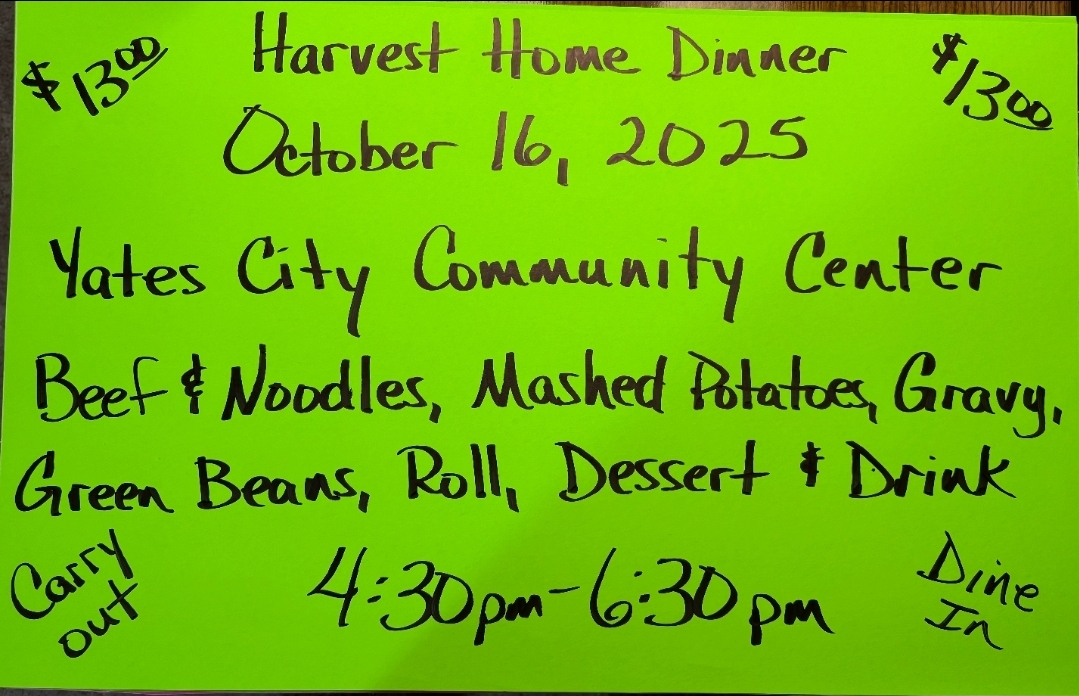 $13.00
Harvest Home Dinner
$13.00
October 16, 2025
Yates City Community Center
Beef & Noodles, Mashed Potatoes, Gravy,
Green Beans, Roll, Dessert & Drink
Carry
out
4:30pm-6:30pm
Dine
In